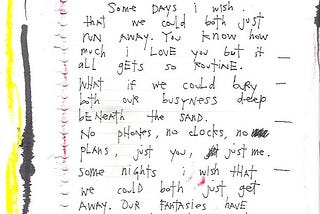 Some DAYS i wish.
that we could both just
RUN AWAY. You KNOW how
much i LOVE you but it
all gETS so rOUTiNE.
WHAT if we could bury
both our busyness deep
bENEATH the SAND.
No phoNES, no clocks, no
plANS, just you, just me.
some nights i wish THAT
we could both just get
AWAY. OUR FANTASiES HAVE